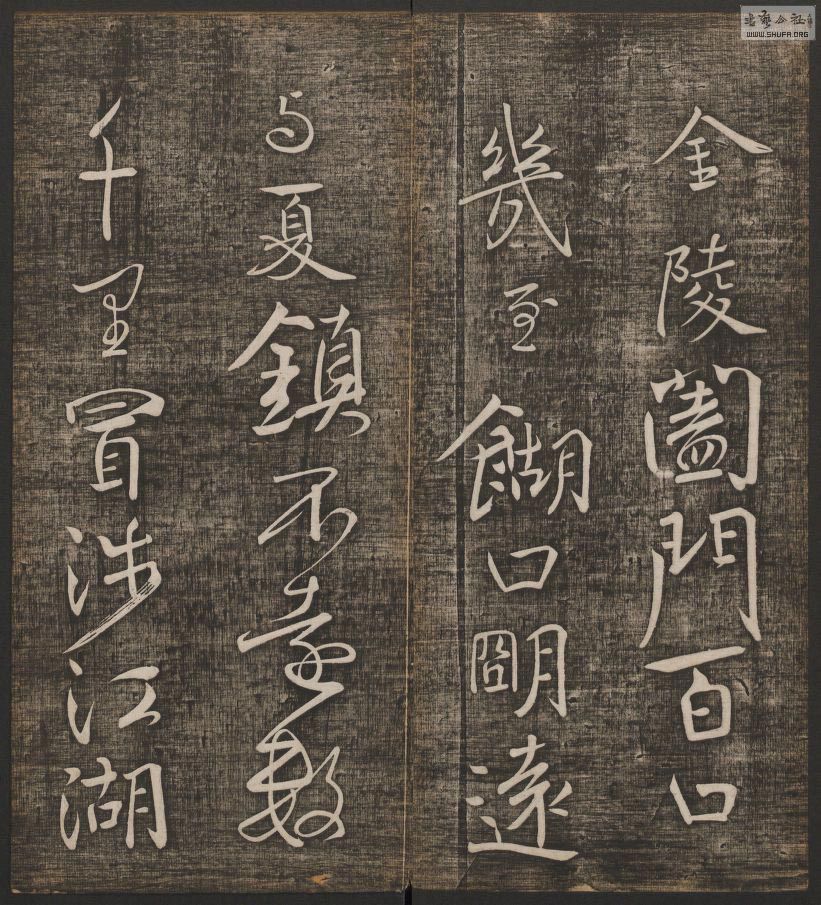 金陵闔門百口
幾至餬口朙遠
与夏鎮不遠數
千里冒涉江湖
書藝公社
WWW.SHUFA.ORG